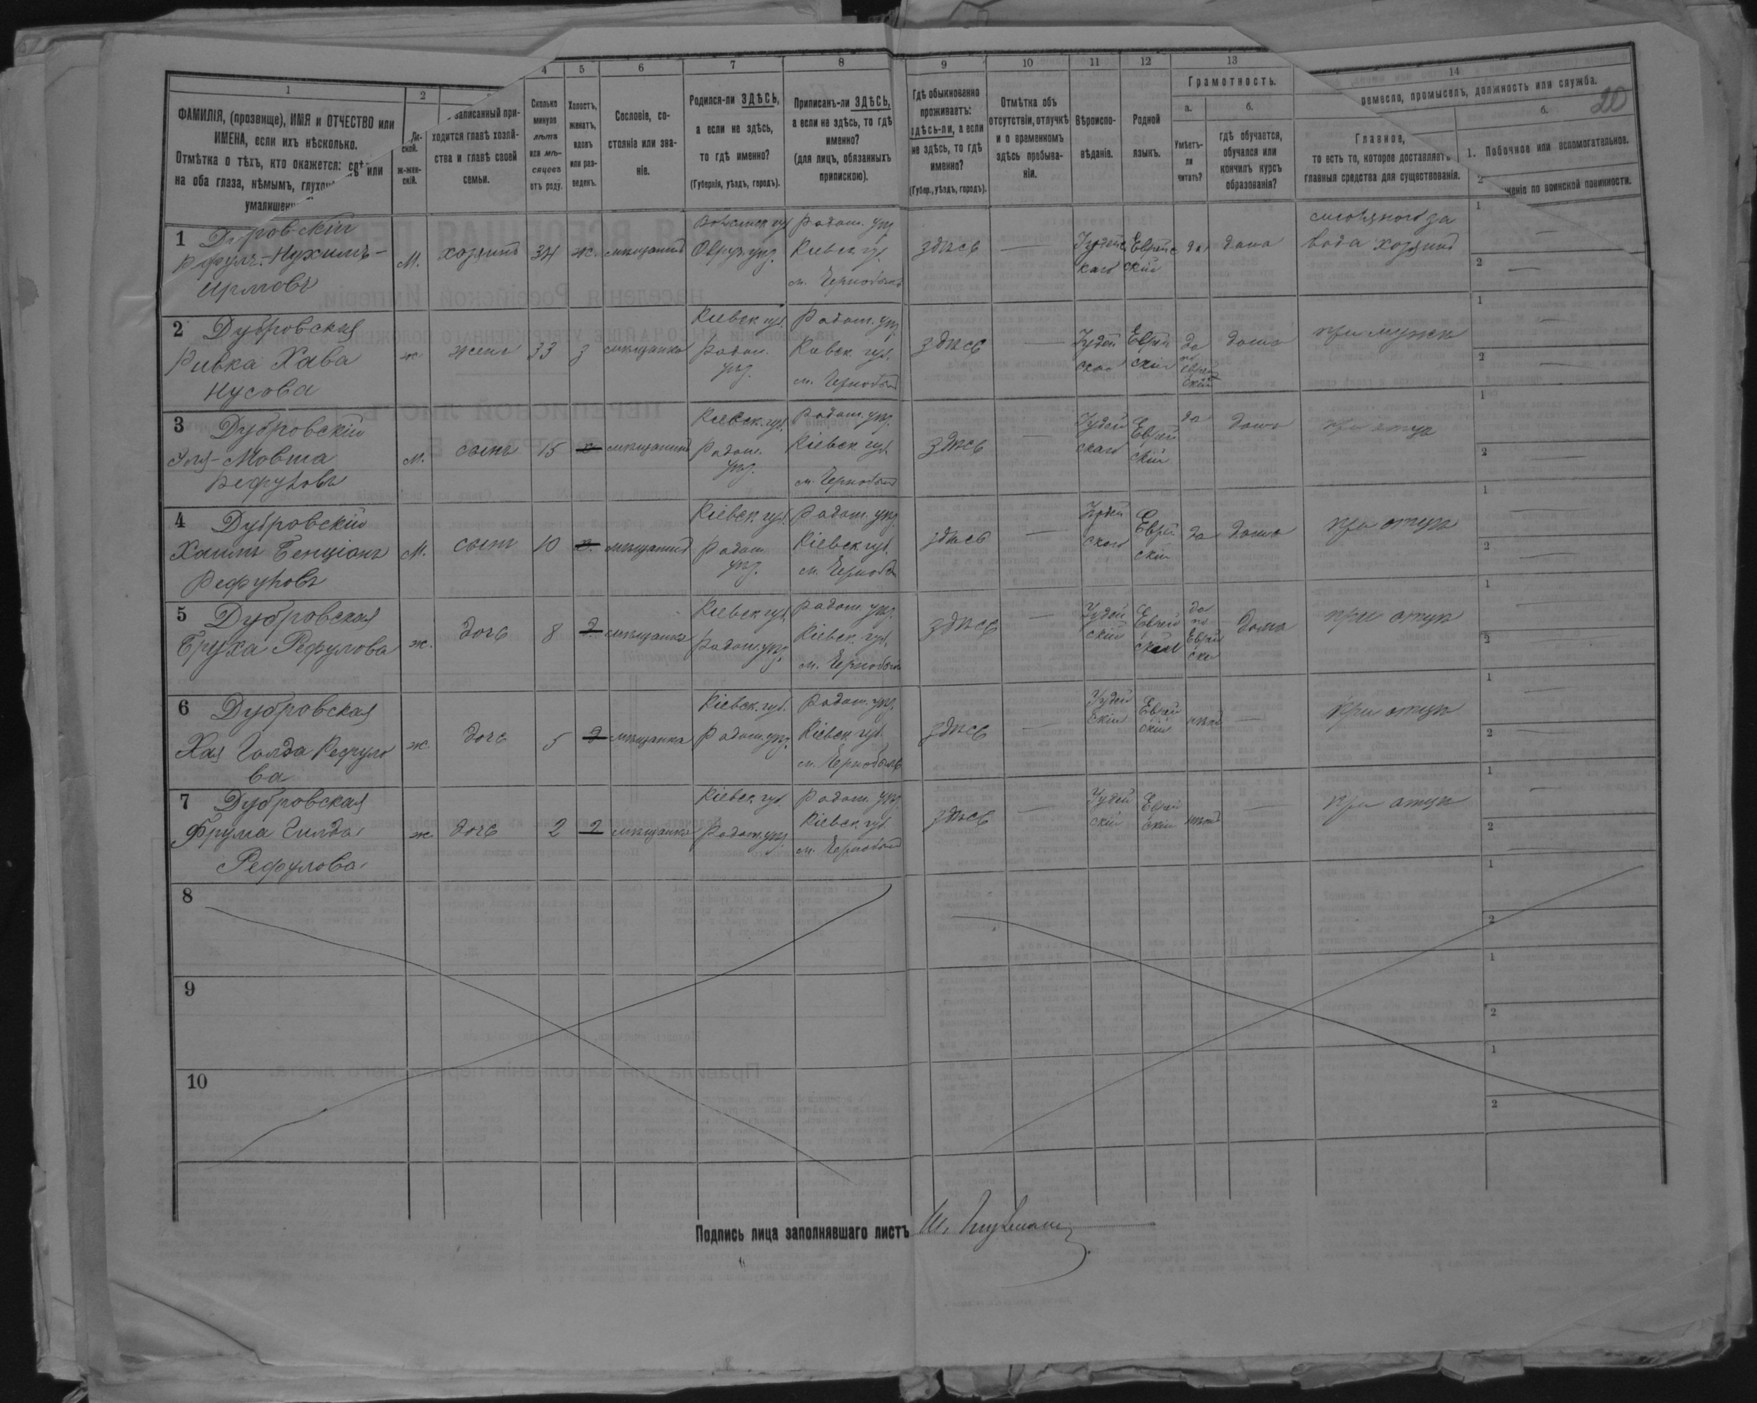 1
2
4
5
6
7
8
9
10
11
12
13
14
ФАМИЛІЯ, (прозвище), ИМЯ и ОТЧЕСТВО или
ИМЕНА, если ихъ нѣсколько.
Отмѣтка о тѣхъ, кто окажется: или
на оба глаза, нѣмымъ,
ж-жен-
скій.
записанный при-
ходится главѣ хозяй-
ства и главѣ своей
семьи.
Сколько
минуло
лѣтъ
или мѣ-
сяцевъ
отъ роду.
Холостъ,
женатъ,
вдовъ
или раз-
веденъ.
Сословіе, со-
стояніе или зва-
ніе.
Родился-ли ЗДѢСЬ,
а если не здѣсь,
то гдѣ именно?
(Губернія, уѣздъ, городъ).
Приписанъ-ли ЗДѢСЬ,
а если не здѣсь, то гдѣ
именно?
(для лицъ, обязанныхъ
припискою).
Гдѣ обыкновенно
проживаетъ:
ЗДѢСЬ-ЛИ, а если
не здѣсь, то гдѣ
именно?
(Губер., уѣздъ, городъ).
Отмѣтка объ
отсутствіи, отлучкѣ
и о временномъ
здѣсь пребыва-
ніи.
Вѣроиспо-
вѣданіе.
Родной
языкъ.
Грамотность.
а.
Умѣетъ-
ли
читать?
б.
гдѣ обучается,
обучался или
кончилъ курсъ
образованія?
ремесло, промыселъ, должность или служба.
Главное,
то есть то, которое доставляетъ
главныя средства для существованія.
б.
1. Побочное или вспомогательное.
2
по воинской повинности.
1
м.
хозяинъ
34
ж.
мѣщанинъ
Овруч. уѣз.
Радом. уѣз.
Кіевск. губ.
м. Чернобыль
здѣсь
—
Іудейс
каго
Еврейс
кій
да
дома
вода хозяинъ
1
—
2
—
2 Дубровская
Ривка Хава
Нусова
ж
жена
33
з
мѣщанка
Кіевск. губ.
Радом.
уѣз.
Радом. уѣз.
Кіевск. губ.
м. Чернобыль
здѣсь
—
Іудей
скаго
Еврей
скій
да
по
еврей
скій
дома
при мужѣ
1
—
2
—
3 Дубровскій
Мовша
м.
сынъ
15
мѣщанинъ
Кіевск. губ.
Радом.
уѣз.
Радом. уѣз.
Кіевск. губ.
м. Чернобыль
здѣсь
—
Іудей
скаго
Еврей
скій
да
дома
при отцѣ
1
2
4 Дубровскій
Хаимъ Бенціонъ
м.
сынъ
10
мѣщанинъ
Кіевск. губ.
Радом.
уѣз.
Радом. уѣз.
Кіевск. губ.
м. Чернобыль
здѣсь
—
Іудей
скаго
Еврей
скій
да
дома
при отцѣ
1
2
5 Дубровская
Бруха Рефулова
ж.
дочь
8
мѣщанка
Кіевск. губ.
Радом. уѣз.
Радом. уѣз.
Кіевск. губ.
м. Чернобыль
здѣсь
—
Іудей
скій
Еврей
скій
да
по
Еврей
ски
дома
при отцѣ
1
2
6 Дубровская
Хая Голда Рефуло
ва
ж.
дочь
5
мѣщанка
Кіевск. губ.
Радом. уѣз.
Радом. уѣз.
Кіевск. губ.
м. Чернобыль
здѣсь
—
Іудей
скій
Еврей
скій
нѣтъ
—
при отцѣ
1
—
2
—
7 Дубровская
Фрума Гилда
Рефулова
ж
дочь
2
мѣщанка
Кіевск. губ.
Радом. уѣз.
Радом. уѣз.
Кіевск. губ.
м. Чернобыль
здѣсь
—
Іудей
скій
Еврей
скій
нѣтъ
—
при отцѣ
1
—
2
—
8
1
2
9
1
2
10
1
2
Подпись лица заполнявшаго листъ